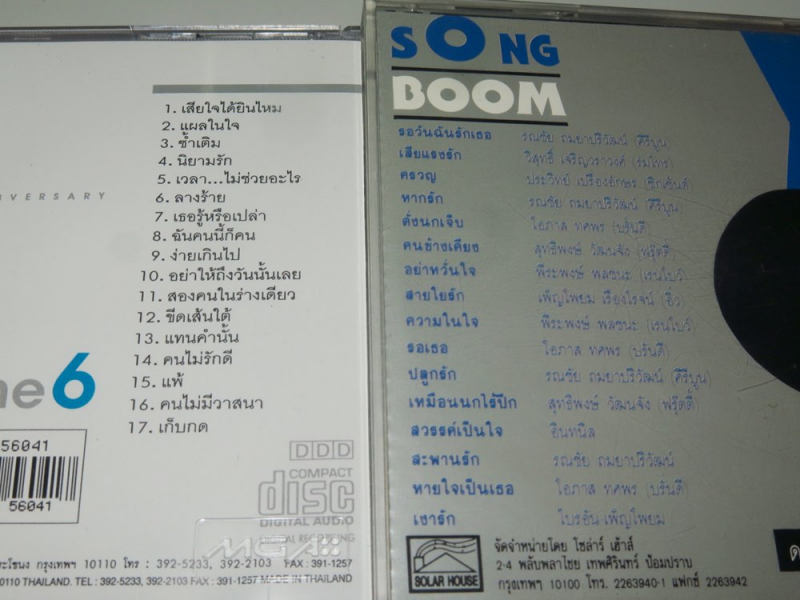 1. เสียใจได้ยินไหม
2. แผลในใจ
3. ซ้ำเติม
4. นิยามรัก
5. เวลา...ไม่ช่วยอะไร
IVERSARY
6. ลางร้าย
7. เธอรู้หรือเปล่า
8. ฉันคนนี้ก็คน
9. ง่ายเกินไป
10. อย่าให้ถึงวันนั้นเลย
11. สองคนในร่างเดียว
12. ขีดเส้นใต้
13. แทนคำนั้น
14. คนไม่รักดี
15. แพ้
16. คนไม่มีวาสนา
17. เก็บกด
ne6
56041
56041
DDD
COMPACT
disc
DIGITAL AUDIO
DIGITAL RECORDING
MGA
ระโขนง กรุงเทพฯ 10110 โทร : 392-5233, 392-2103 FAX : 391-1257
10110 THAILAND. TEL : 392-5233, 392-2103 FAX : 391-1257 MADE IN THAILAND
SONG
BOOM
รอวันฉันรักเธอ รณชัย ถมยาปริวัฒน์ (คีรีบูน)
เสียแรงรัก วิสุทธิ์ เจริญวราวงศ์ (ร่มไทร)
ครวญ ประวิทย์ เปรื่องอักษร (ซิกเซ้นต์)
หากรัก รณชัย ถมยาปริวัฒน์ (คีรีบูน)
ดั่งนกเจ็บ โอภาส ทศพร (บรั่นดี)
คนข้างเคียง สุทธิพงษ์ วัฒนจัง (ฟรุ๊ตตี้)
อย่าหวั่นใจ พีระพงษ์ พลชนะ (เรนโบว์)
สายใยรัก เพ็ญโพยม เรืองโรจน์ (อิ๋ว)
ความในใจ พีระพงษ์ พลชนะ (เรนโบว์)
รอเธอ โอภาส ทศพร (บรั่นดี)
ปลูกรัก รณชัย ถมยาปริวัฒน์ (คีรีบูน)
เหมือนนกไร้ปีก สุทธิพงษ์ วัฒนจัง (ฟรุ๊ตตี้)
สวรรค์เป็นใจ อินทนิล
สะพานรัก รณชัย ถมยาปริวัฒน์
หายใจเป็นเธอ โอภาส ทศพร (บรั่นดี)
เงารัก ไบรอัน เพ็ญโพยม
SOLAR HOUSE
จัดจำหน่ายโดย โซล่าร์ เฮ้าส์
2-4 พลับพลาไชย เทพศิรินทร์ ป้อมปราบ
กรุงเทพฯ 10100 โทร. 2263940-1 แฟกซ์ 2263942